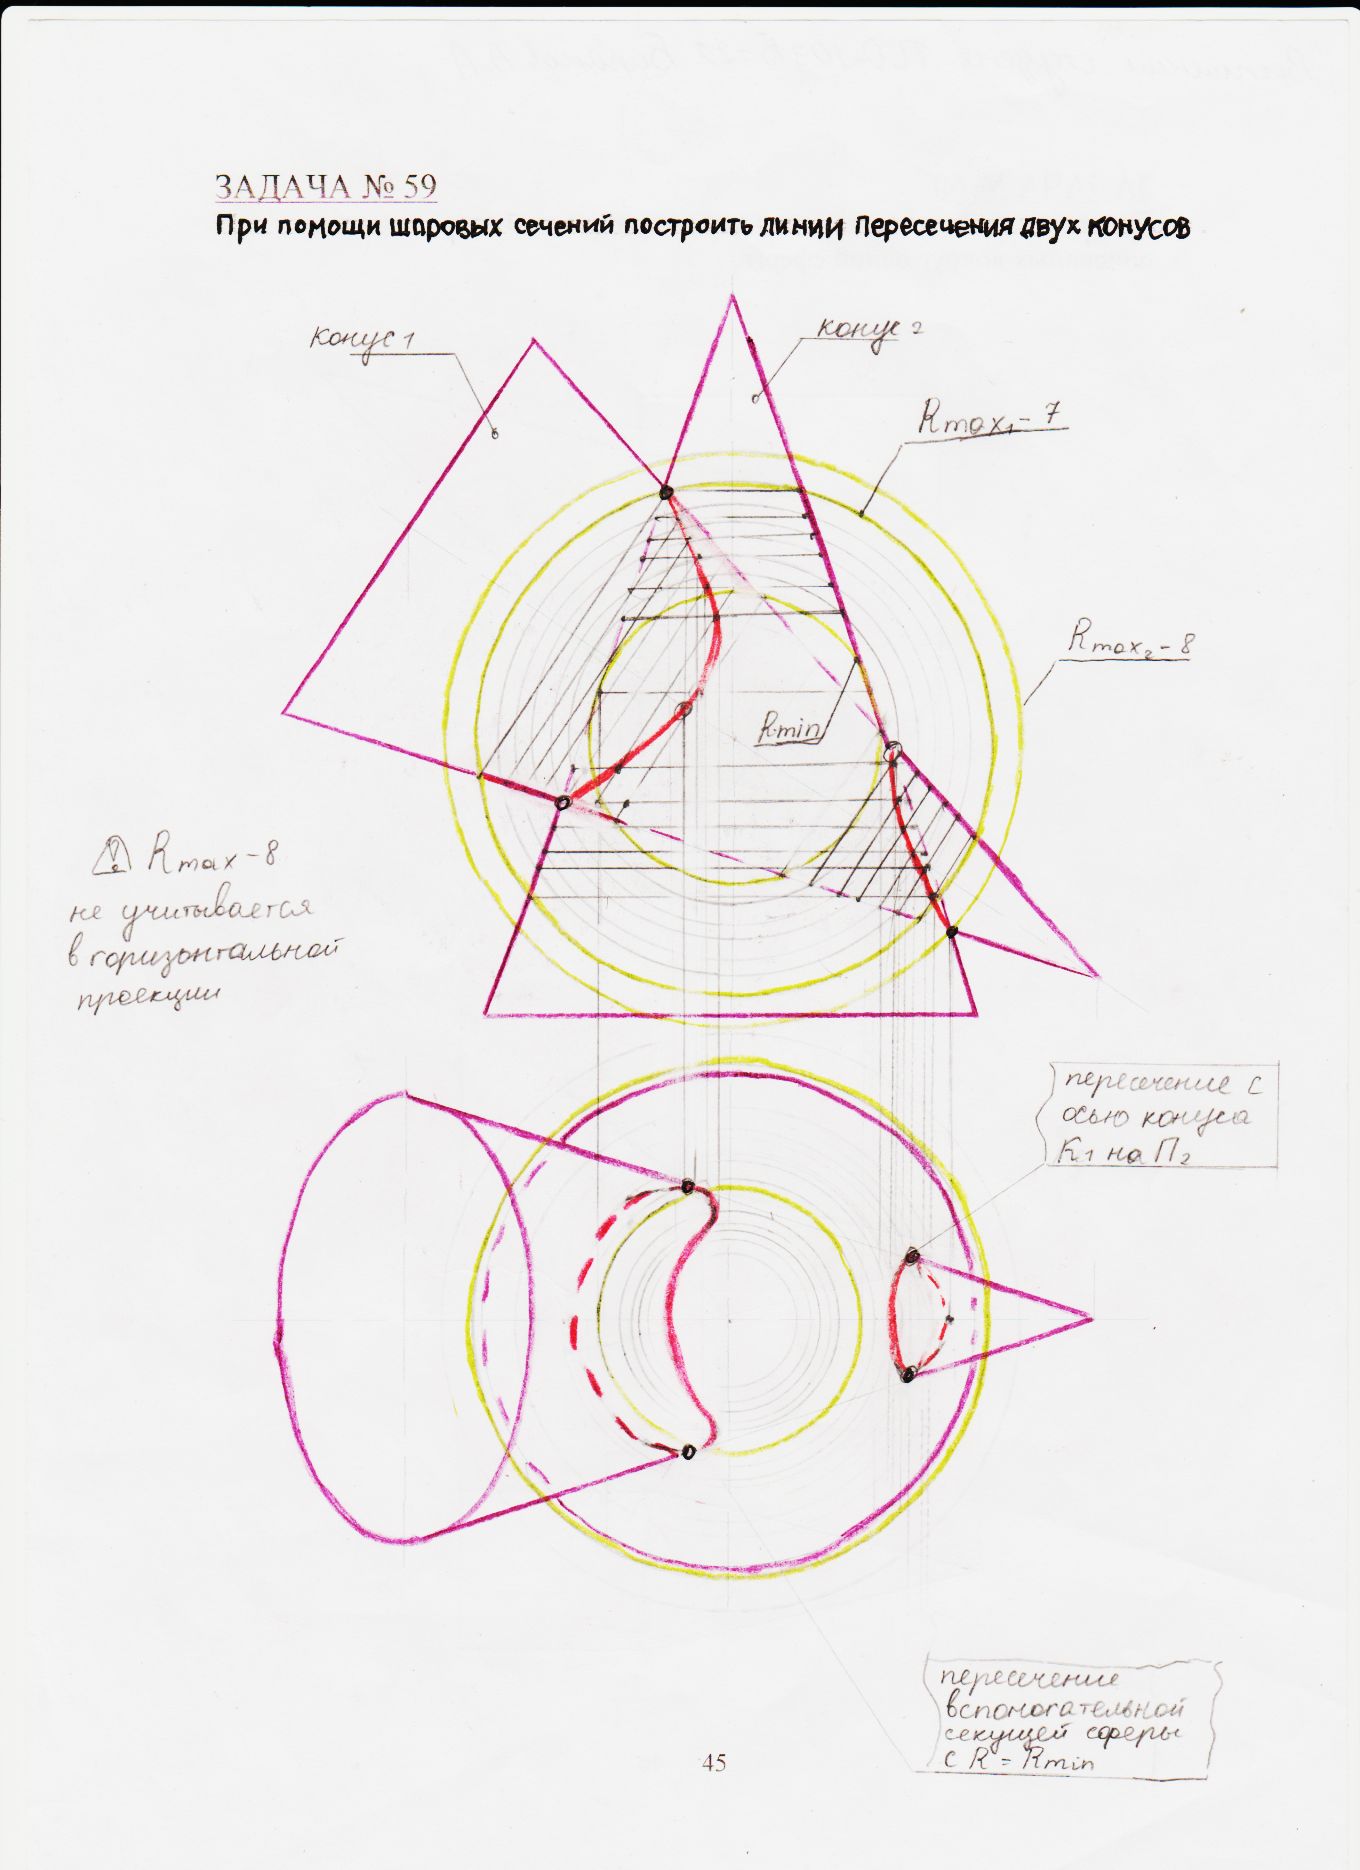 ЗАДАЧА № 59
При помощи шаровых сечений построить линии пересечения двух конусов
конус 1
конус 2
Rmax₁-7
Rmax₂-8
Rmin
Rmax-8
не учитывается
в горизонтальной
проекции
пересечение с
осью конуса
К₁ на П₂
пересечение
вспомогательной
секущей сферы
с R = Rmin
45